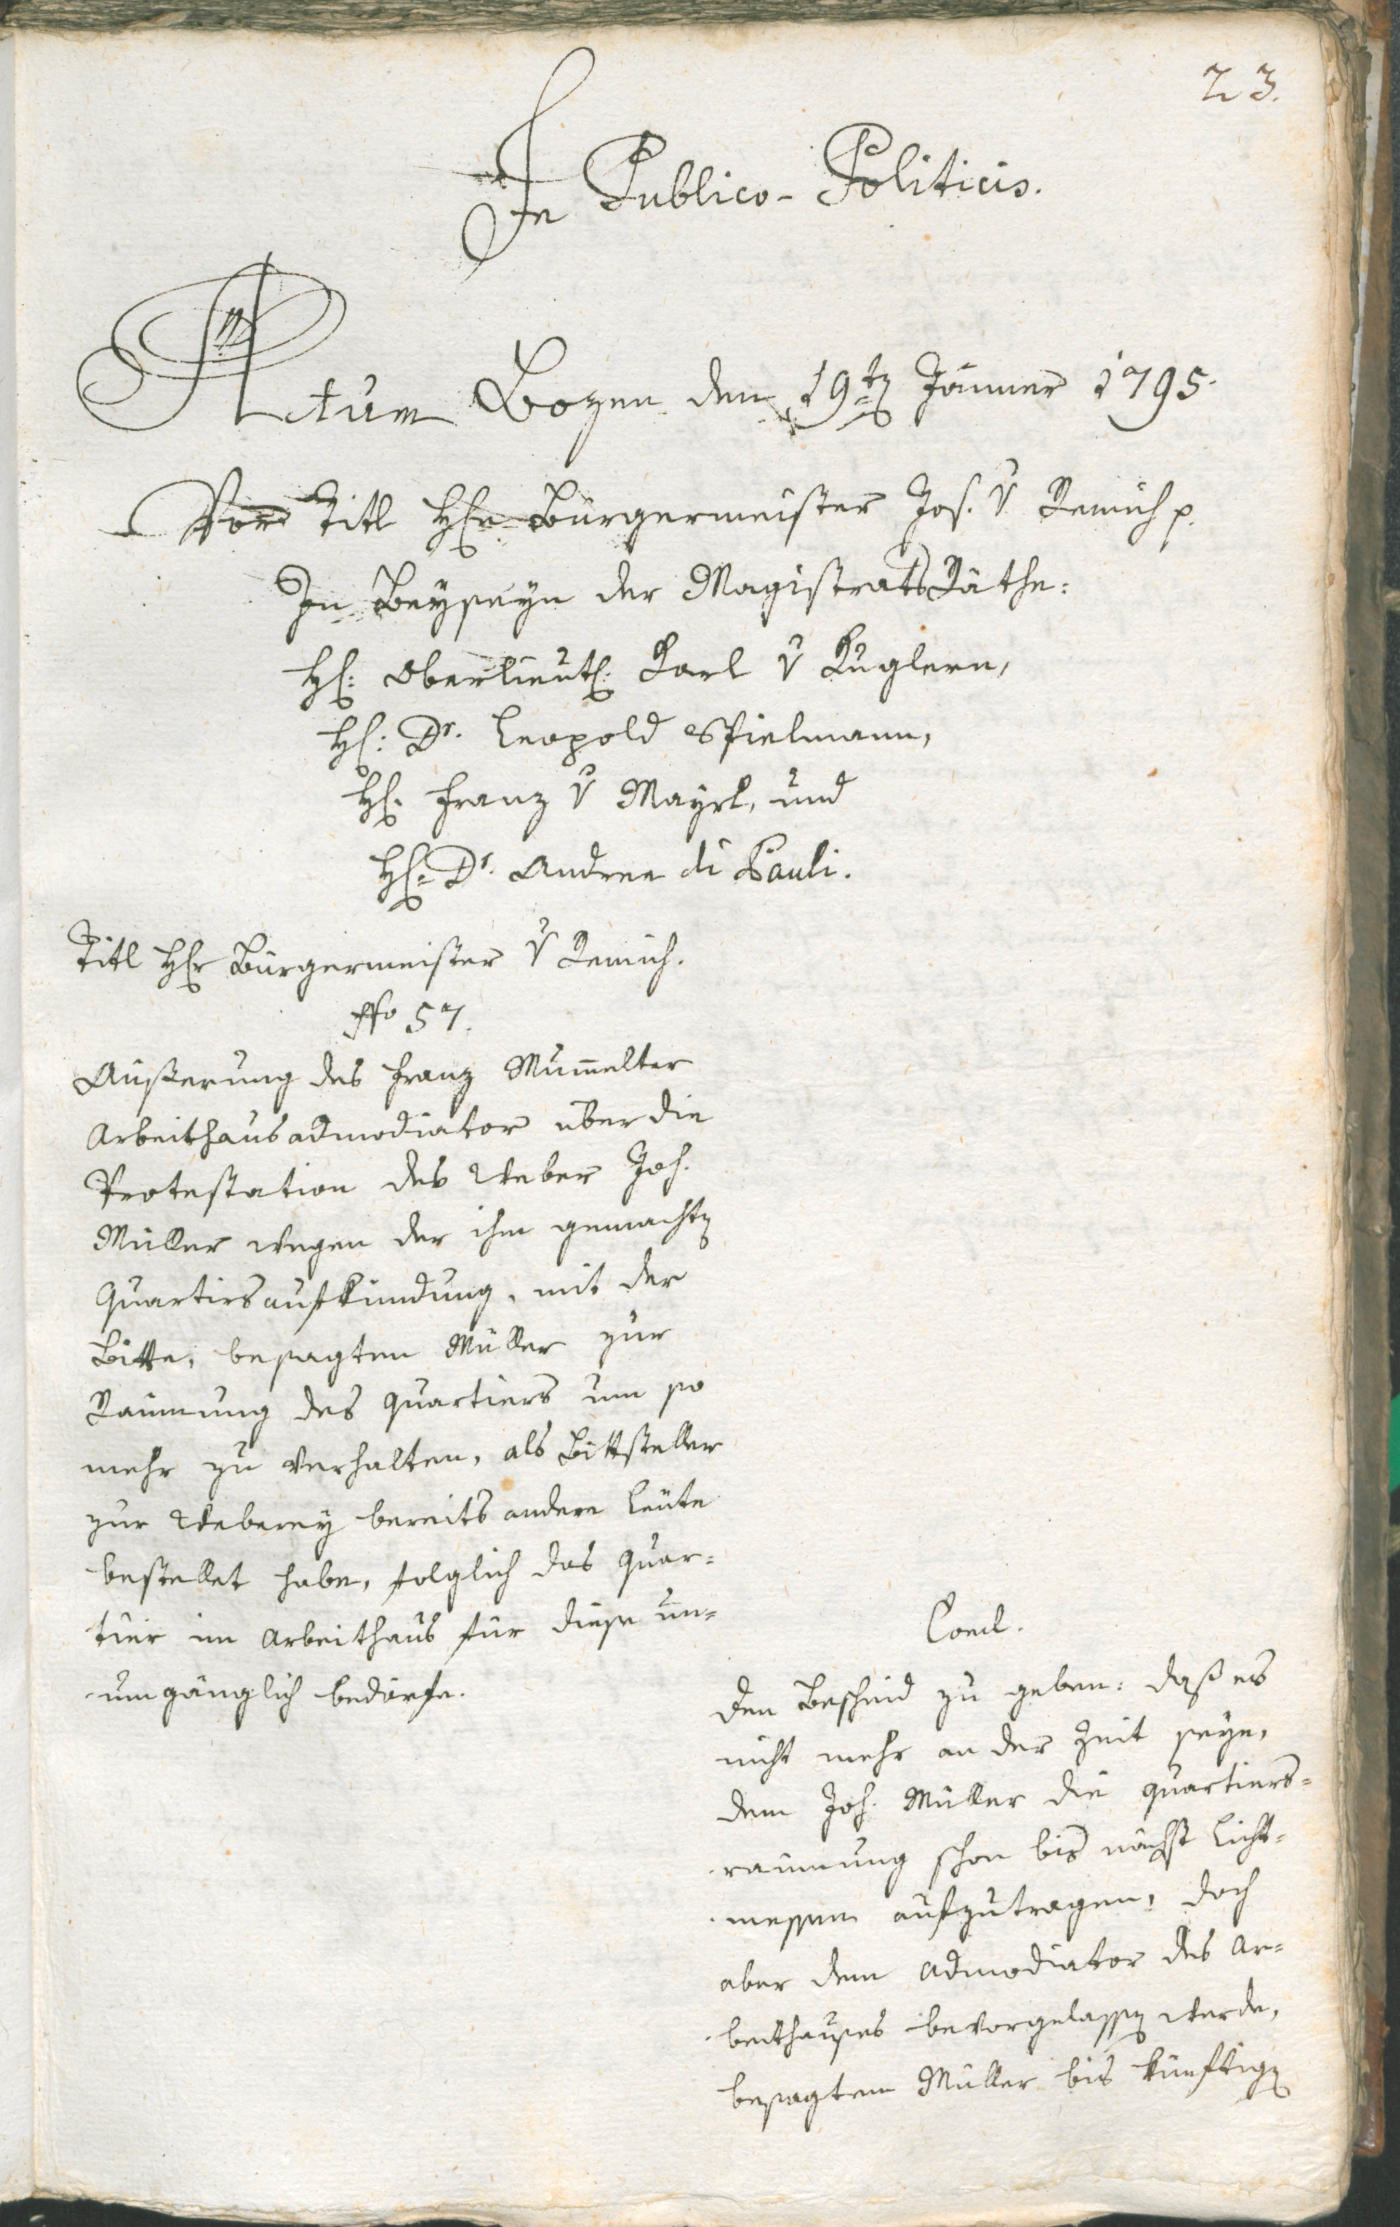 23.
In Publico-Politicis.
Actum Bozen den 19ten Jänner 1795.
Vor Titl Hrn Bürgermeister Jos. v Remich p.
In Beyseyn der MagistratsRäthe:
H: Oberlieut: Karl v Kuglern,
H: Dr. Leopold Spielmann,
H: Franz v Mayrl, und
H: Dr. Andree di Pauli.
Titl Hr Bürgermeister v Remich.
57.
Äußerung des Franz Mumelter
Arbeithausadmodiator über die
Protestation des Weber Joh.
Müller wegen der ihm gemachten
Quartiersaufkündung, mit der
Bitte, besagten Müller zur
Räumung des Quartiers um so
mehr zu verhalten, als Bittsteller
zur Weberey bereits andere Leute
bestellet habe, folglich das Quar=
tier im Arbeithaus für diese un=
umgänglich bedörfe.
Concl.
Den Bescheid zu geben: daß es
nicht mehr an der Zeit seye,
dem Joh. Müller die Quartiers=
raumung schon bis nächst Licht=
messen aufzutragen, doch
aber dem Admodiator des Ar=
beithauses bevorgelassen werde,
besagtem Müller bis künftigen